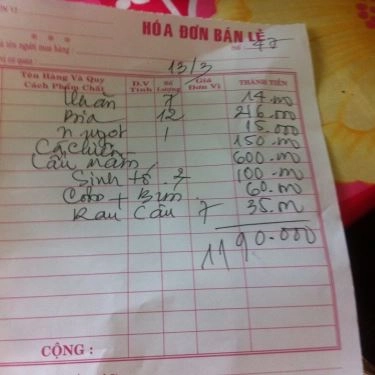 HÓA ĐƠN BÁN LẺ
tên người mua hàng
13/3
Tên Hàng Và Quy Cách Phẩm Chất Đ.V Tính Số Lượng Giá Đơn Vị THÀNH TIỀN
Khăn 7 14.000
Bia 12 216.000
n ngọt 1 15.000
Cá chiên 150.000
Lẩu mắm 600.000
Sinh tố 2 100.000
Coto + Bim 60.000
Rau Câu 7 35.000
1190.000
CỘNG :